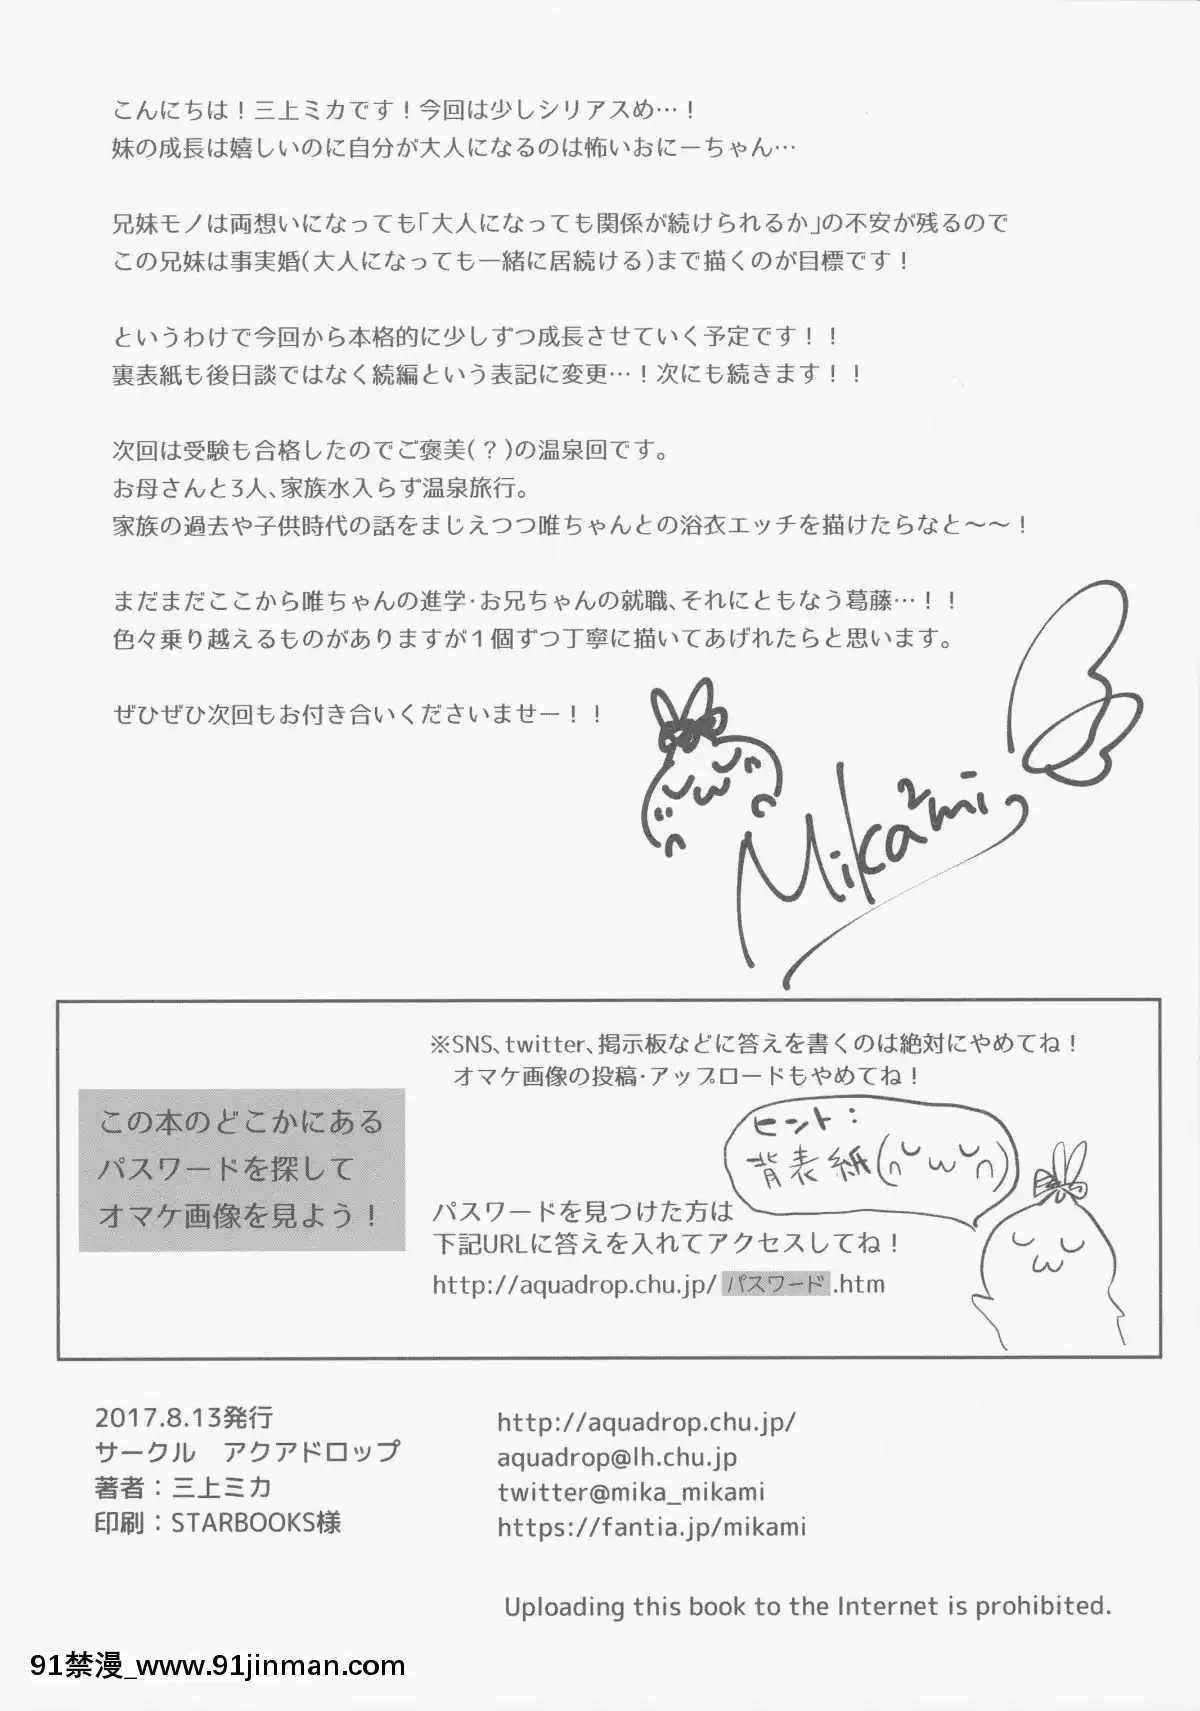 こんにちは！三上ミカです！今回は少しシリアスめ…！
妹の成長は嬉しいのに自分が大人になるのは怖いおにーちゃん…
兄妹モノは両想いになっても「大人になっても関係が続けられるか」の不安が残るので
この兄妹は事実婚(大人になっても一緒に居続ける)まで描くのが目標です！
というわけで今回から本格的に少しずつ成長させていく予定です！！
裏表紙も後日談ではなく続編という表記に変更…！次にも続きます！！
次回は受験も合格したのでご褒美(？)の温泉回です。
お母さんと3人、家族水入らず温泉旅行。
家族の過去や子供時代の話をまじえつつ唯ちゃんとの浴衣エッチを描けたらなと～～！
まだまだここから唯ちゃんの進学・お兄ちゃんの就職、それにともなう葛藤…！！
色々乗り越えるものがありますが１個ずつ丁寧に描いてあげれたらと思います。
ぜひぜひ次回もお付き合いくださいませー！！
Mika2mi
※SNS、twitter、掲示板などに答えを書くのは絶対にやめてね！
オマケ画像の投稿・アップロードもやめてね！
この本のどこかにある
パスワードを探して
オマケ画像を見よう！
ヒント：
背表紙(∩˘ω˘∩)
パスワードを見つけた方は
下記URLに答えを入れてアクセスしてね！
http://aquadrop.chu.jp/パスワード.htm
2017.8.13発行
サークル　アクアドロップ
著者：三上ミカ
印刷：STARBOOKS様
http://aquadrop.chu.jp/
aquadrop@lh.chu.jp
twitter@mika_mikami
https://fantia.jp/mikami
Uploading this book to the Internet is prohibited.
91禁漫_www.91jinman.com